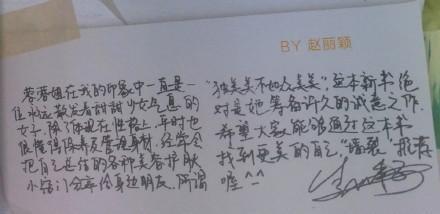 BY 赵丽颖
蓉蓉姐在我的印象中一直是一
位永远散发着甜甜少女气息的
女子，除了体现在性格上，平时也
很懂得保养及管理身材，经常会
把自己总结的各种美容护肤
小窍门分享给身边朋友，所谓
“独美美不如众美美”，这本新书，绝
对是她筹备许久的诚意之作，
希望大家能够通过这本书
找到更美的自己，“墙裂”推荐
喔^^